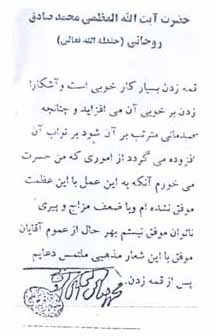 حضرت آیت الله العظمی محمد صادق
روحانی (حفظه الله تعالی)
قمه زدن بسیار کار خوبی است و آشکارا
زدن بر خوبی آن می افزاید و چنانچه
صدماتی مترتب بر آن شود بر ثواب آن
افزوده می گردد از اموری که من حسرت
می خورم آنکه به این عمل با این عظمت
موفق نشده ام و با ضعف مزاج و پیری
ناتوان موفق نیستم بهر حال از عموم آقایان
موفق با این شعار مذهبی ملتمس دعایم
پس از قمه زدن.